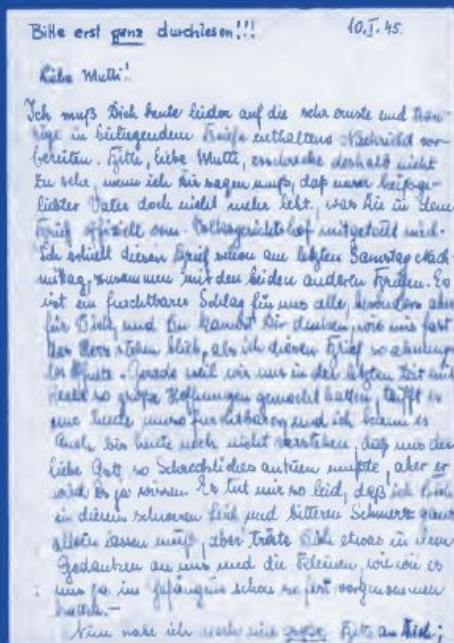 Bitte erst ganz durchlesen!!! 10.I.45.
Liebe Mutti!
Ich muß Dich heute leider auf die sehr ernste und trau-
rige in beiliegendem Briefe enthaltene Nachricht vor-
bereiten. Bitte, liebe Mutti, erschrecke deshalb nicht
zu sehr, wenn ich Dir sagen muß, daß unser heißge-
liebter Vater doch nicht mehr lebt, was Dir in dem
Brief offiziell vom Volksgerichtshof mitgeteilt wird.
Ich erhielt diesen Brief schon am letzten Samstag Nach-
mittag, zusammen mit den beiden anderen Briefen. Es
ist ein furchtbarer Schlag für uns alle, besonders aber
für Dich, und Du kannst Dir denken, wie mir fast
das Herz stehen blieb, als ich diesen Brief so ahnung-
los öffnete. Gerade weil wir uns in der letzten Zeit mit
so große Hoffnungen gemacht hatten, trifft es
uns heute umso furchtbarer, und ich kann es
auch bis heute noch nicht verstehen, daß uns der
liebe Gott so Schreckliches antun mußte, aber er
wird es ja wissen. Es tut mir so leid, daß ich Dich
in diesem schweren Leid und bitteren Schmerz ganz
allein lassen muß, aber tröste Dich etwas in dem
Gedanken an uns und die Kleinen, wie wir es
uns ja im Gefängnis schon so fest vorgenommen
hatten.—
Nun habe ich noch eine große Bitte an Dich;